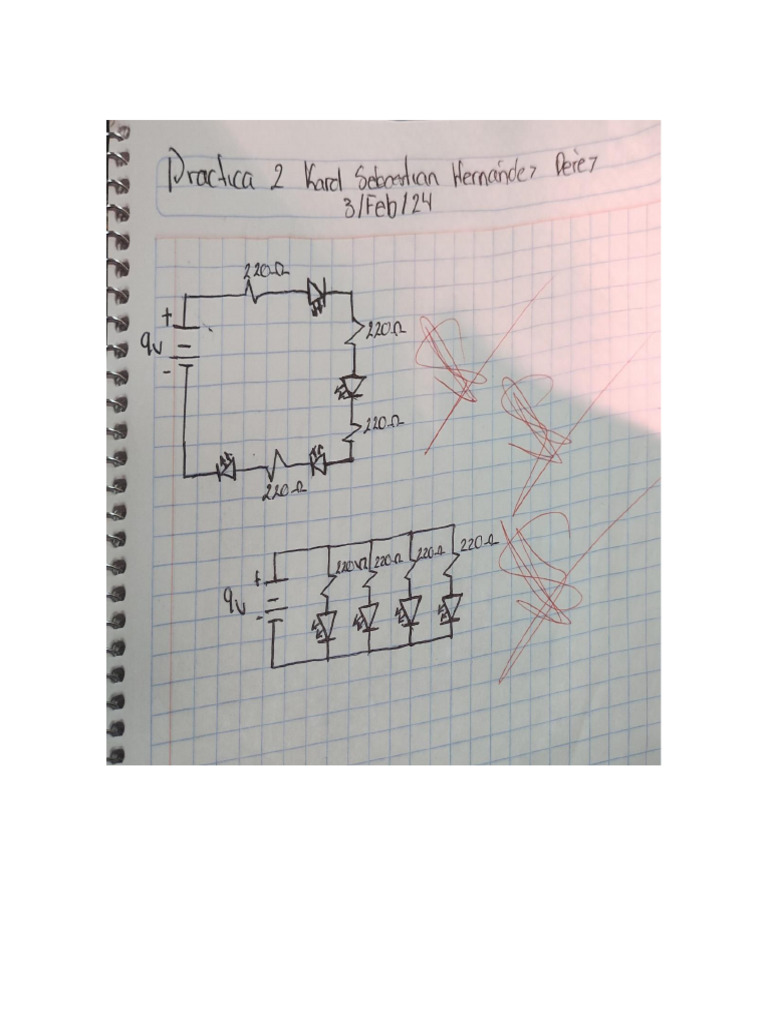 Practica 2 Karol Sebastian Hernández Pérez
3/Feb/24
220Ω
+
220Ω
9v
-
220Ω
220Ω
220Ω 220Ω 220Ω 220Ω
+
9v
-